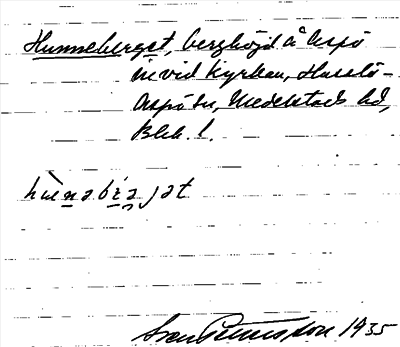 Hunneberget, berghöjd å Aspö
invid kyrkan, Hasslö-
Aspö sn, Medelstads hd,
Blek. l.
hùnəbæ̀rjət
Sven Benson 1935